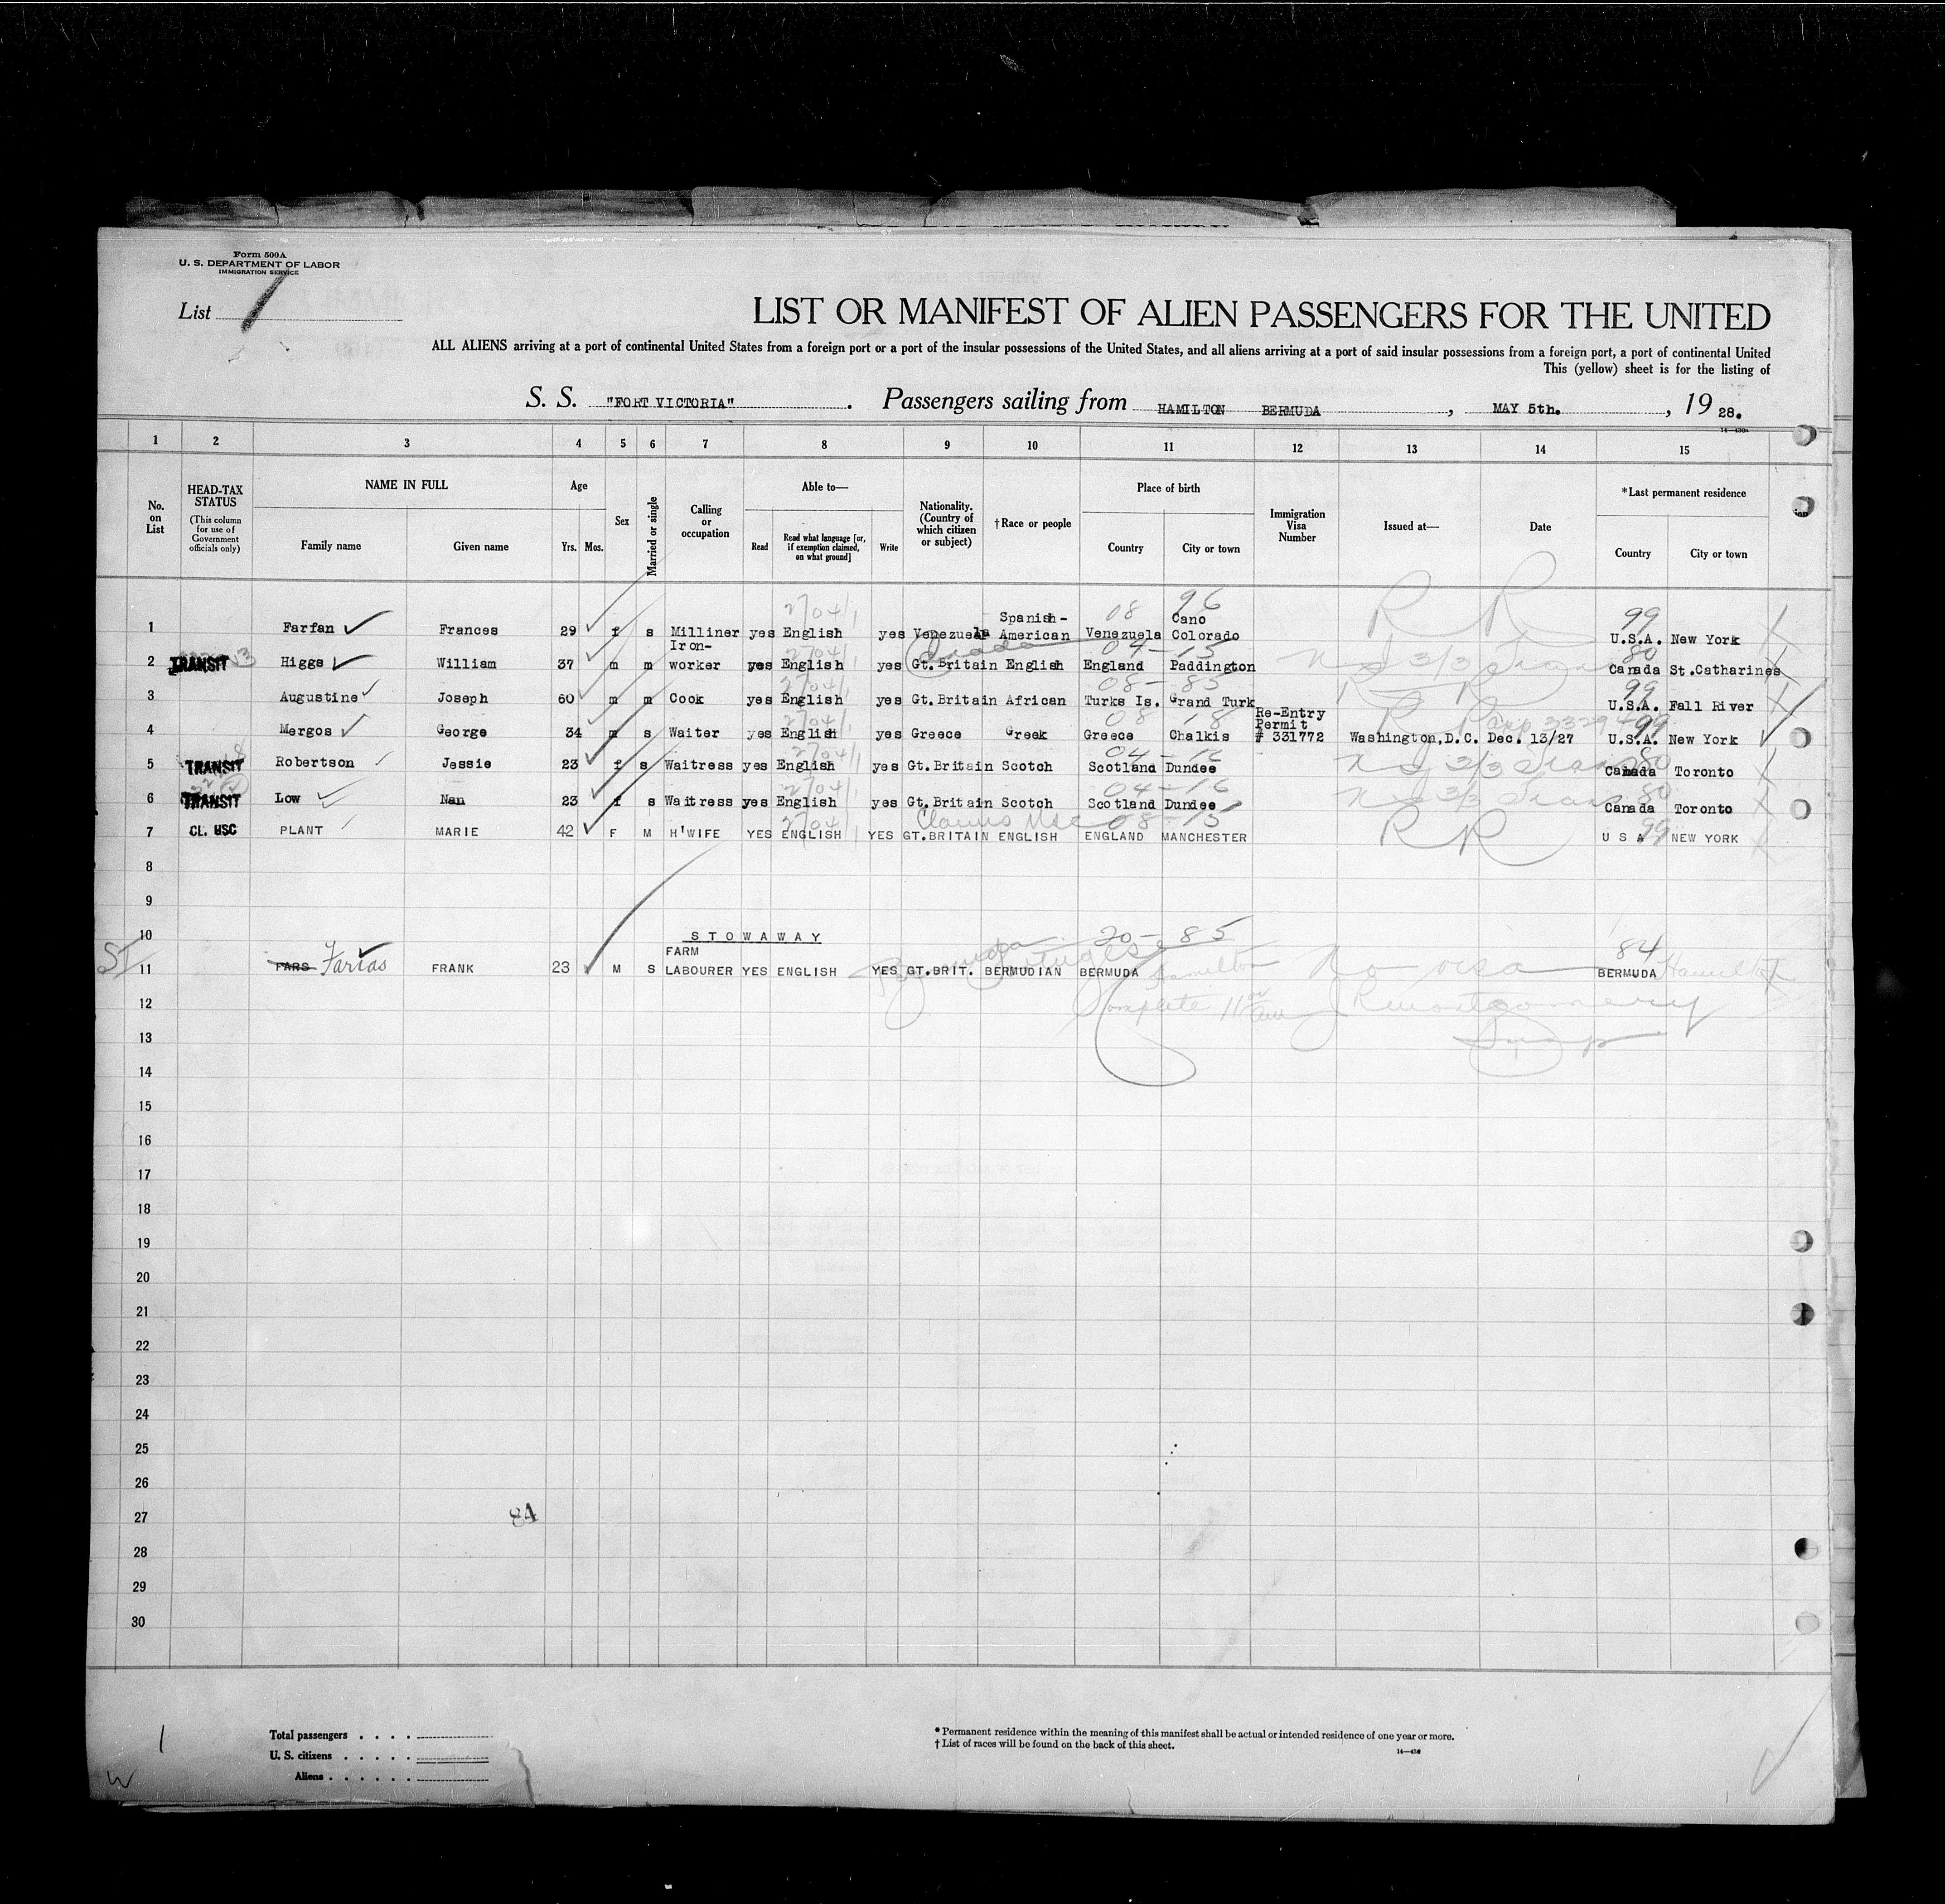 Form 500A
U. S. DEPARTMENT OF LABOR
IMMIGRATION SERVICE
List 1
LIST OR MANIFEST OF ALIEN PASSENGERS FOR THE UNITED
ALL ALIENS arriving at a port of continental United States from a foreign port or a port of the insular possessions of the United States, and all aliens arriving at a port of said insular possessions from a foreign port, a port of continental United
This (yellow) sheet is for the listing of
S. S. "FORT VICTORIA". Passengers sailing from HAMILTON BERMUDA, MAY 5th., 19 28.
1 2 3 4 5 6 7 8 9 10 11 12 13 14 15
No. on List
HEAD-TAX STATUS
(This column for use of Government officials only)
NAME IN FULL
Family name Given name
Age
Yrs. Mos.
Sex
Married or single
Calling or occupation
Able to—
Read
Read what language [or, if exemption claimed, on what ground]
Write
Nationality. (Country of which citizen or subject)
†Race or people
Place of birth
Country City or town
Immigration Visa Number
Issued at—
Date
*Last permanent residence
Country City or town
1 Farfan Frances 29 f s Milliner yes English yes Venezuela Spanish-American Venezuela Cano Colorado R R 99 U.S.A. New York
2 TRANSIT Higgs William 37 m m Iron-worker yes English yes Gt.Britain Canada English England Paddington 80 Canada St.Catharines
3 Augustine Joseph 60 m m Cook yes English yes Gt.Britain African Turks Is. Grand Turk R R 99 U.S.A. Fall River
4 Mergos George 34 m s Waiter yes English yes Greece Greek Greece Chalkis Re-Entry Permit # 331772 Washington,D.C. Dec. 13/27 99 U.S.A. New York
5 TRANSIT Robertson Jessie 23 f s Waitress yes English yes Gt.Britain Scotch Scotland Dundee 80 Canada Toronto
6 TRANSIT Low Nan 23 f s Waitress yes English yes Gt.Britain Scotch Scotland Dundee 80 Canada Toronto
Claims USC
7 CL. USC PLANT MARIE 42 F M H'WIFE YES ENGLISH YES GT.BRITAIN ENGLISH ENGLAND MANCHESTER R R 99 U S A NEW YORK
8
9
10 STOWAWAY 20-85
ST 11 FARS Farias FRANK 23 M S FARM LABOURER YES ENGLISH YES GT.BRIT. BERMUDIAN BERMUDA Hamilton No visa 84 BERMUDA Hamilton
12 Complete 11 Rmontgomery
13 Insp
14
15
16
17
18
19
20
21
22
23
24
25
26
27 84
28
29
30
1
Total passengers
U. S. citizens
Aliens
W
* Permanent residence within the meaning of this manifest shall be actual or intended residence of one year or more.
† List of races will be found on the back of this sheet.